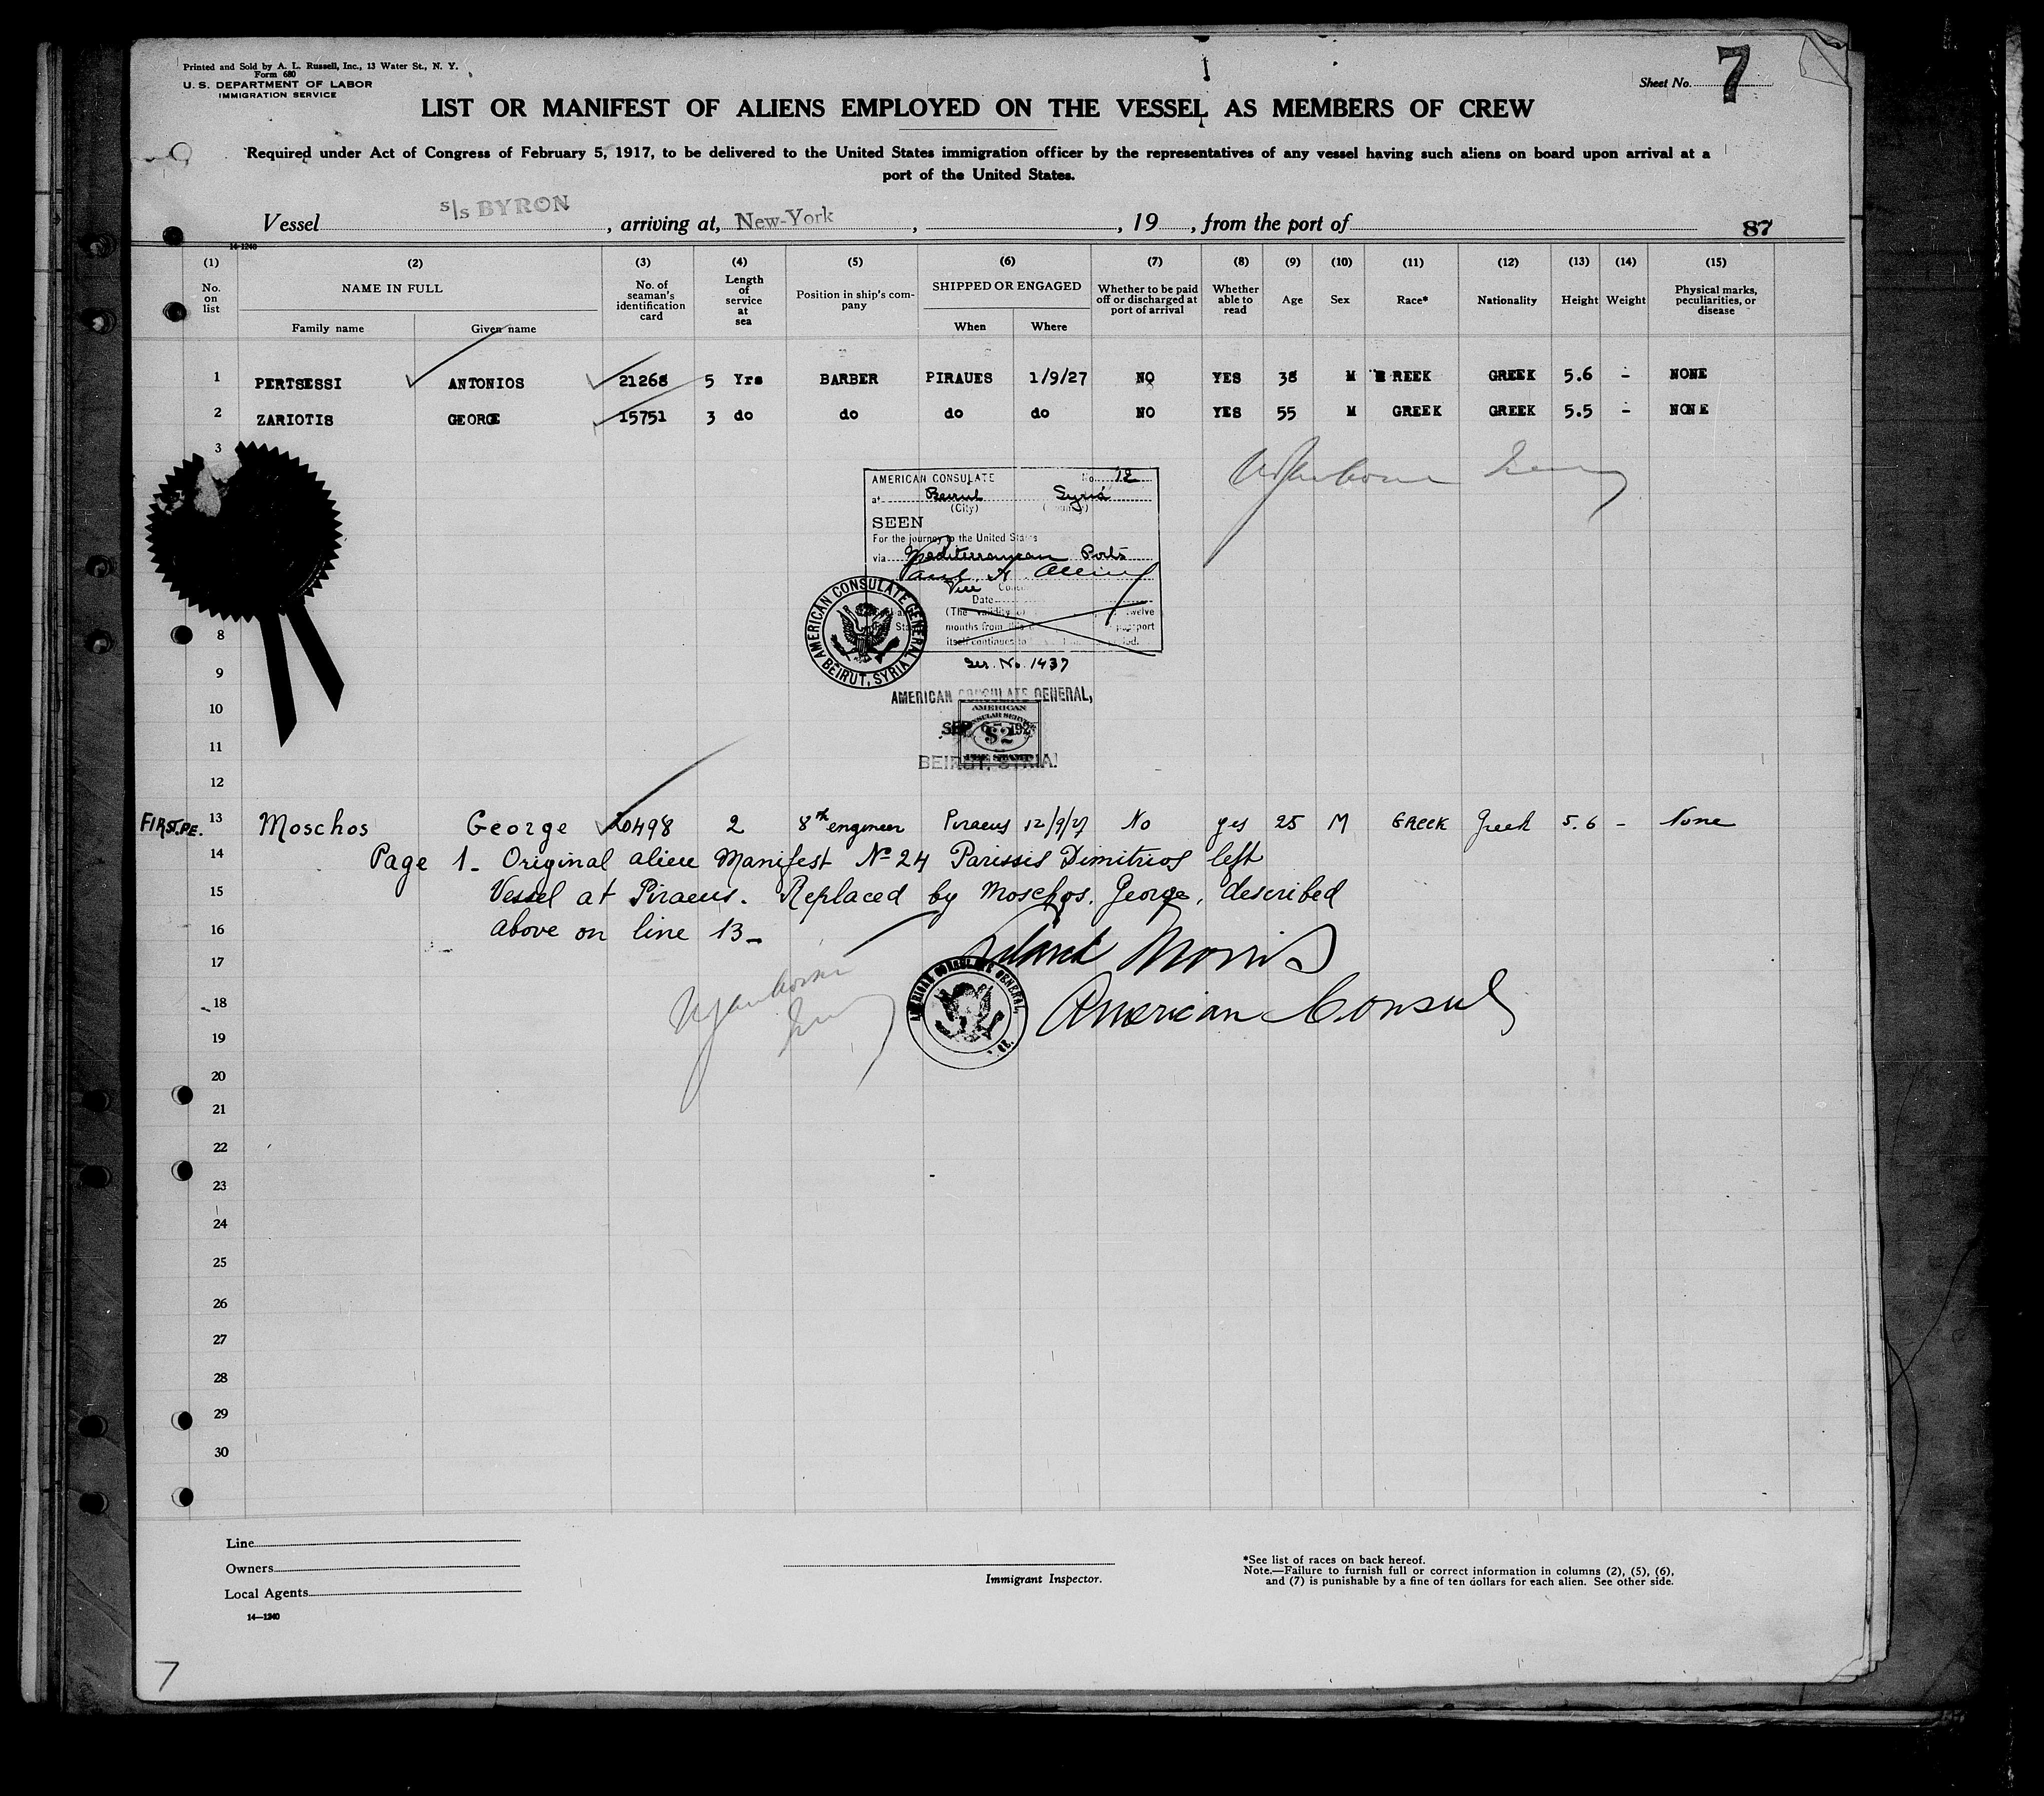 Printed and Sold by A. L. Russell, Inc., 13 Water St., N. Y.
Form 680
U. S. DEPARTMENT OF LABOR
IMMIGRATION SERVICE
Sheet No. 7
LIST OR MANIFEST OF ALIENS EMPLOYED ON THE VESSEL AS MEMBERS OF CREW
Required under Act of Congress of February 5, 1917, to be delivered to the United States immigration officer by the representatives of any vessel having such aliens on board upon arrival at a
port of the United States.
Vessel s/s BYRON, arriving at, New-York, , 19 , from the port of
87
14-1240
(1) (2) (3) (4) (5) (6) (7) (8) (9) (10) (11) (12) (13) (14) (15)
No. on list NAME IN FULL No. of seaman's identification card Length of service at sea Position in ship's company SHIPPED OR ENGAGED Whether to be paid off or discharged at port of arrival Whether able to read Age Sex Race* Nationality Height Weight Physical marks, peculiarities, or disease
Family name Given name When Where
1 PERTSESSI ANTONIOS 21268 5 Yrs BARBER PIRAUES 1/9/27 NO YES 38 M REEK GREEK 5.6 - NONE
2 ZARIOTIS GEORGE 15751 3 do do do do NO YES 55 M GREEK GREEK 5.5 - NONE
3
AMERICAN CONSULATE No. 12
at Beirut Syria
(City) (Country)
SEEN
For the journey to the United States
via Mediterranean Ports
Vice Consul
Date
(The validity of twelve
months from this passport
itself continues to period.
AMERICAN CONSULATE GENERAL
BEIRUT, SYRIA
Ser. No. 1437
8
9
AMERICAN CONSULATE GENERAL,
10
AMERICAN
CONSULAR SERVICE
SEP 192
$2
FEE STAMP
11
BEIRUT, SYRIA.
12
FIRST.PE. 13 Moschos George 20498 2 8th engineer Piraeus 12/9/27 No yes 25 M GREEK Greek 5.6 - None
14 Page 1- Original alien Manifest No 24 Parissis Dimitrios left
15 Vessel at Piraeus. Replaced by Moschos, George, described
16 above on line 13-
17 Leland Morris
AMERICAN CONSULATE GENERAL,
18 American Consul
19
20
21
22
23
24
25
26
27
28
29
30
Line
Owners
Local Agents
14—1240
Immigrant Inspector.
*See list of races on back hereof.
Note.—Failure to furnish full or correct information in columns (2), (5), (6),
and (7) is punishable by a fine of ten dollars for each alien. See other side.
7